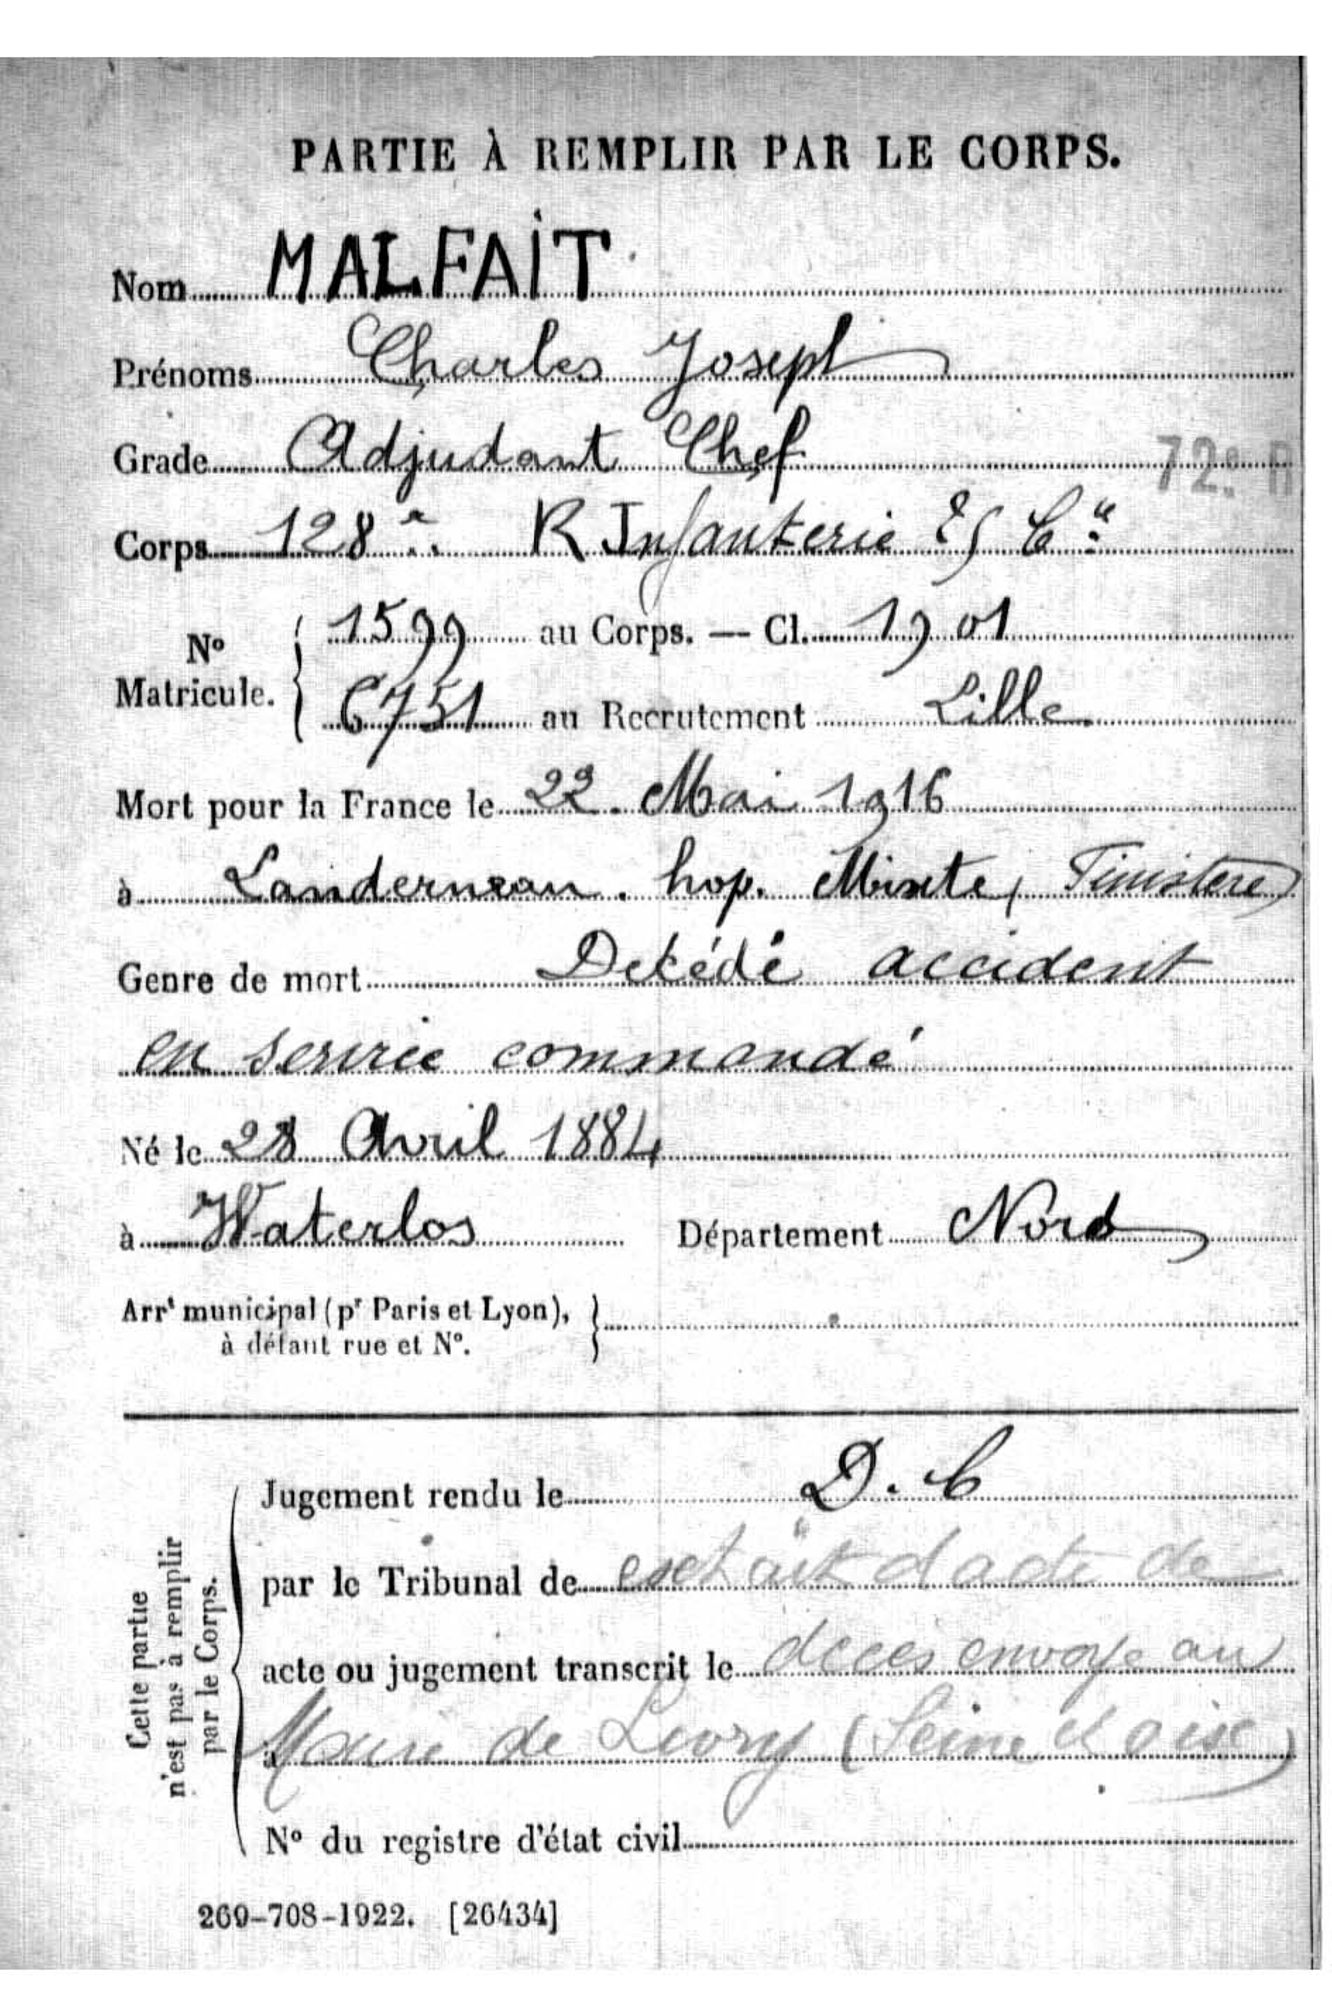 PARTIE À REMPLIR PAR LE CORPS.
Nom MALFAIT
Prénoms Charles Joseph
Grade Adjudant Chef
72e R
Corps 128e R Infanterie 25 Cie
1599 au Corps. — Cl. 1901
No Matricule.
6751 au Recrutement Lille
Mort pour la France le 22 Mai 1916
à Landerneau. hop. Mixte, Finistère)
Genre de mort Décédé accident
en service commandé
Né le 28 Avril 1884
à Waterlos Département Nord
Arrt municipal (pr Paris et Lyon),
à défaut rue et No.
Cette partie
n'est pas à remplir
par le Corps.
Jugement rendu le D. C
par le Tribunal de extrait d acte de
acte ou jugement transcrit le décès envoyé au
à Maire de Livry (Seine et oise)
No du registre d'état civil
269-708-1922. [26434]